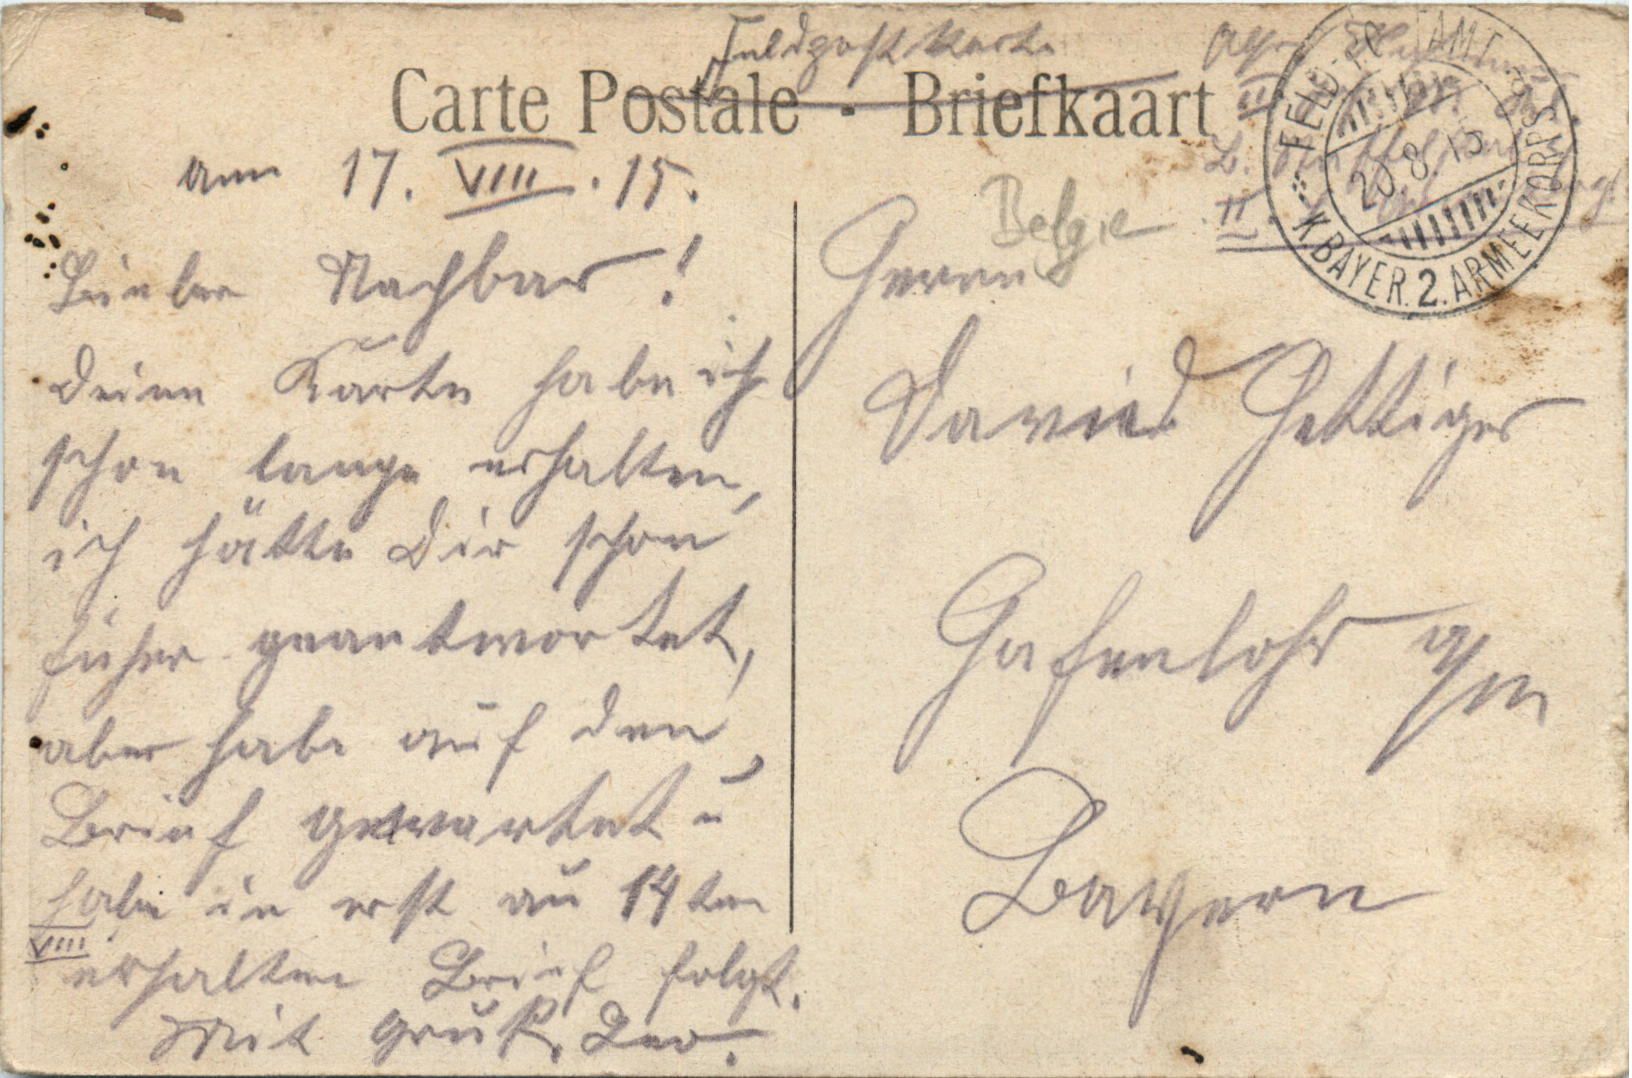 Feldpostkarte
Carte Postale - Briefkaart
am 17. VIII. 15.
Lieber Nachbar!
Deine Karte habe ich
schon lange erhalten,
ich hätte Dir schon
früher geantwortet,
aber habe auf den
Brief gewartet u
habe in erst am 14ten
VIII
erhalten Brief folgt.
Mit Gruß, Leo.
Belgie
Herrn
David Hettiger
Hafenlohr a/m
Bayern
20.8.15
K.BAYER.2.ARMEEKORPS